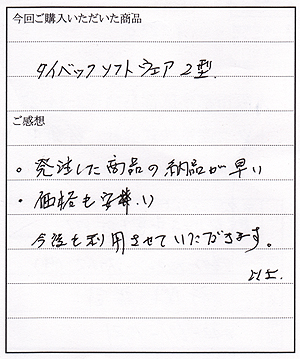 今回ご購入いただいた商品
タイベックソフトウェア 2型.
ご感想
。発注した商品の納品が早い
・価格も安い
今後も利用させていただきます。
以上.